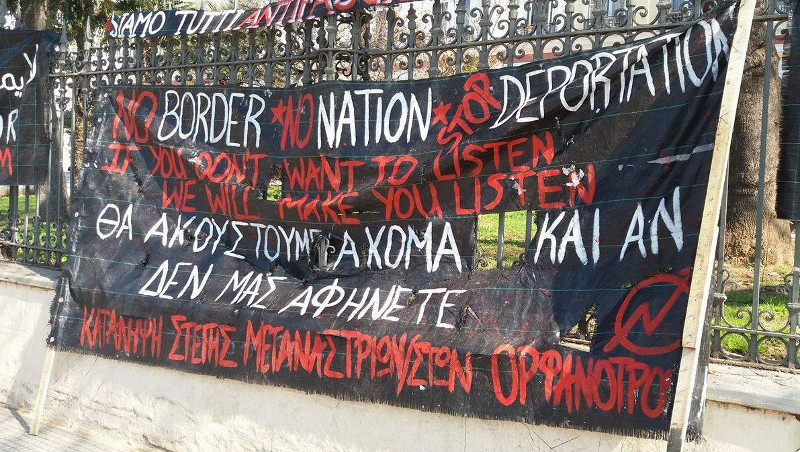 SIAMO TUTTI ANTIFA
NO BORDER *NO NATION* STOP DEPORTATION
IF YOU DON'T WANT TO LISTEN
WE WILL MAKE YOU LISTEN
ΘΑ ΑΚΟΥΣΤΟΥΜΕ ΑΧΟΜΑ ΚΑΙ ΑΝ
ΔΕΝ ΜΑΣ ΑΦΗΝΕΤΕ
ΚΑΤΑΛΗΨΗ ΣΤΕΓΗΣ ΜΕΤΑΝΑΣΤΡΙΩΝ/ΣΤΩΝ ΟΡΦΑΝΟΤΡΟ